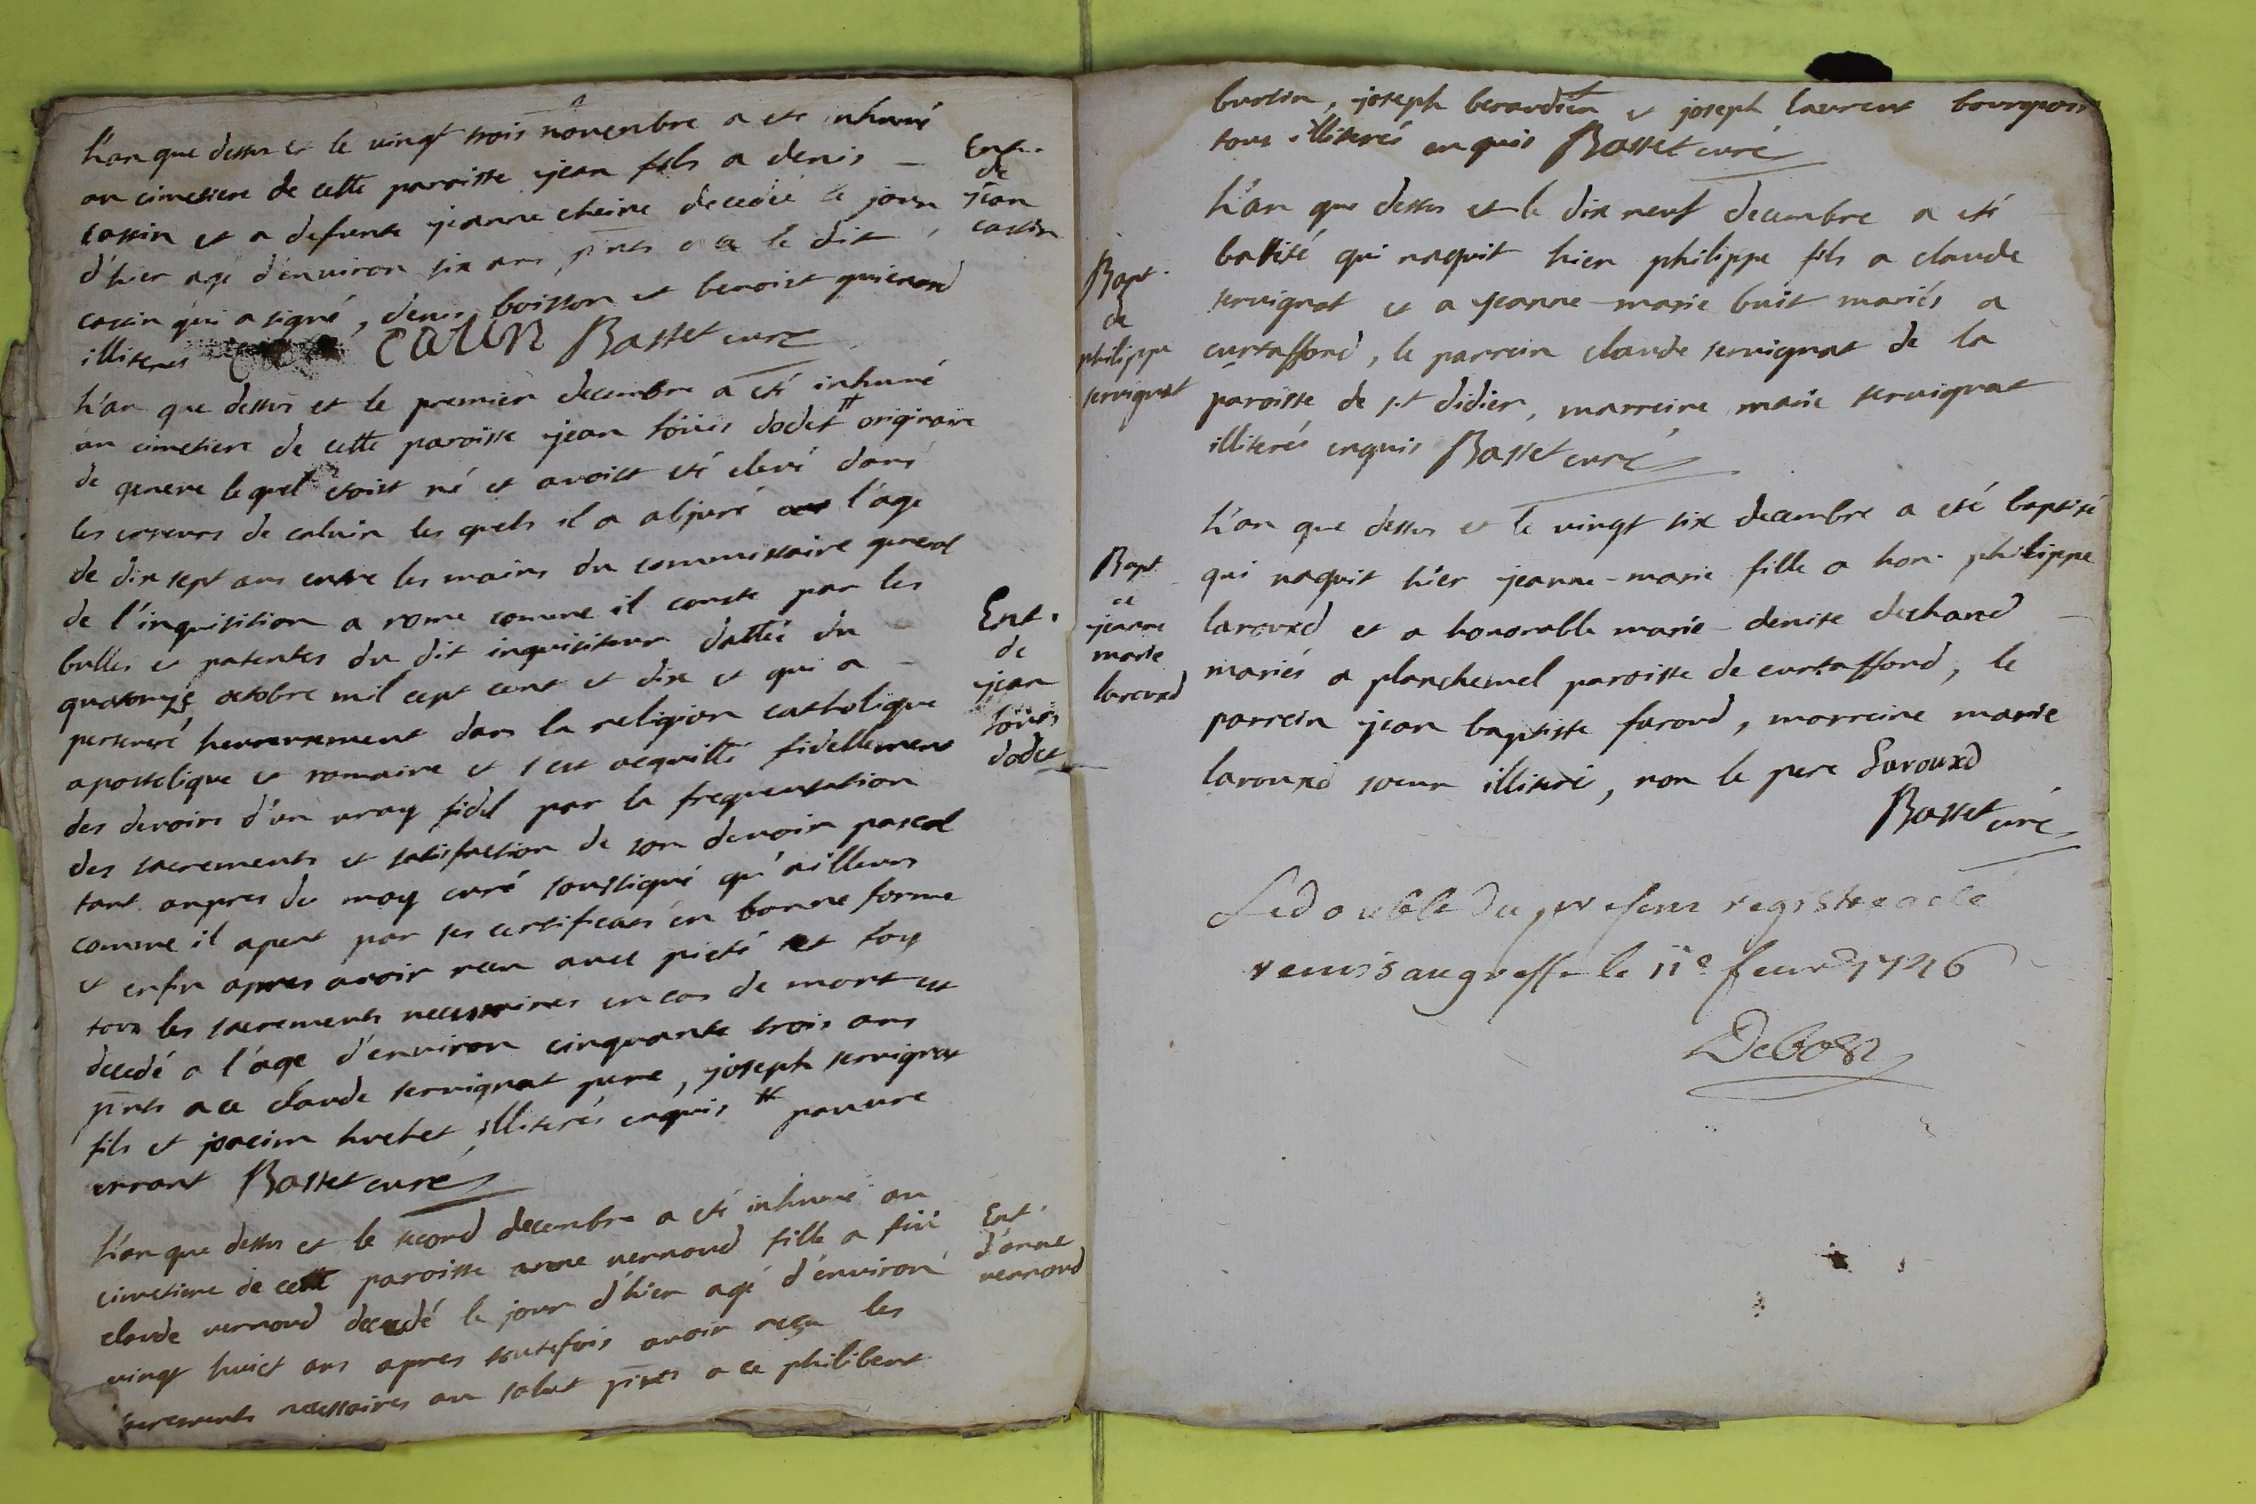 l'an que dessus et le vingt trois novembre a eté inhumé
au cimetiere de cette paroisse jean fils a denis
cassin et a defunte jeanne cheine decedé le jour
d'hier agé d'environ six ans pnts a ce le dit
cassin qui a signé, denis boisson et benoist quienard
illiterés caSin Basset curé
Ent.
de
jean
cassin
l'an que dessus et le premier decembre a eté inhumé
au cimetiere de cette paroisse jean loüis dodet # originaire
de geneve lequel etoist né et avoist eté elevé dans
les erreurs de calvin les quels il a abjuré l'age
de dix sept ans entre les mains du commissaire general
de l'inquisition a rome comme il conste par les
bulles et patentes du dit inquisiteur dattée du
quatorze octobre mil cept cent et dix et qui a
perseveré heureusement dans la religion catholique
apostolique et romaine et s'est acquitté fidellement
des devoirs d'un vray fidel par la frequentation
des sacrements et satisfaction de son devoir pascal
tant aupres de moy curé soussigné qu'ailleurs
comme il apert par ses certificats en bonne forme
et enfin apres avoir receu avec pieté et foy
tous les sacrements necessaires en cas de mort est
decedé a l'age d'environ cinquante trois ans
pnts a ce claude servignat pere, joseph servignat
fils et joacim huchet illiterés enquis # pauvre
errant Basset curé
Ent.
de
jean
loüis
dodet
l'an que dessus et le second decembre a eté inhumé au
cimetiere de cette paroisse anne vernoud fille a füe
claude vernoud decedé le jour d'hier agé d'environ
vingt huict ans apres toutefois avoir reçu les
sacrements necessaires au salut pnts a ce philibert
Ent.
d'anne
vernoud
burtin, joseph beraudien et joseph laurent
tous illiterés enquis Basset curé
l'an que dessus et le dix neuf decembre a eté
batisé qui naquit hier philippe fils a claude
servignat et a jeanne-marie buit mariés a
curtaffond, le parrein claude servignat de la
paroisse de st didier, marreine marie servignat
illiterés enquis Basset curé
Bapt.
de
philippe
servignat
l'an que dessus et le vingt six decembre a eté baptisé
qui naquit hier jeanne-marie fille a hon. philippe
larouxd et a honorable marie-denise dechand
mariés a planchemel paroisse de curtaffond, le
parrein jean baptiste farond, marreine marie
larouxd soeur illiteré, non le pere Larouxd
Basset curé
Bapt
de
jeanne
marie
larouxd
Le double du present registre a eté
remis au greffe le 11e feur 1746